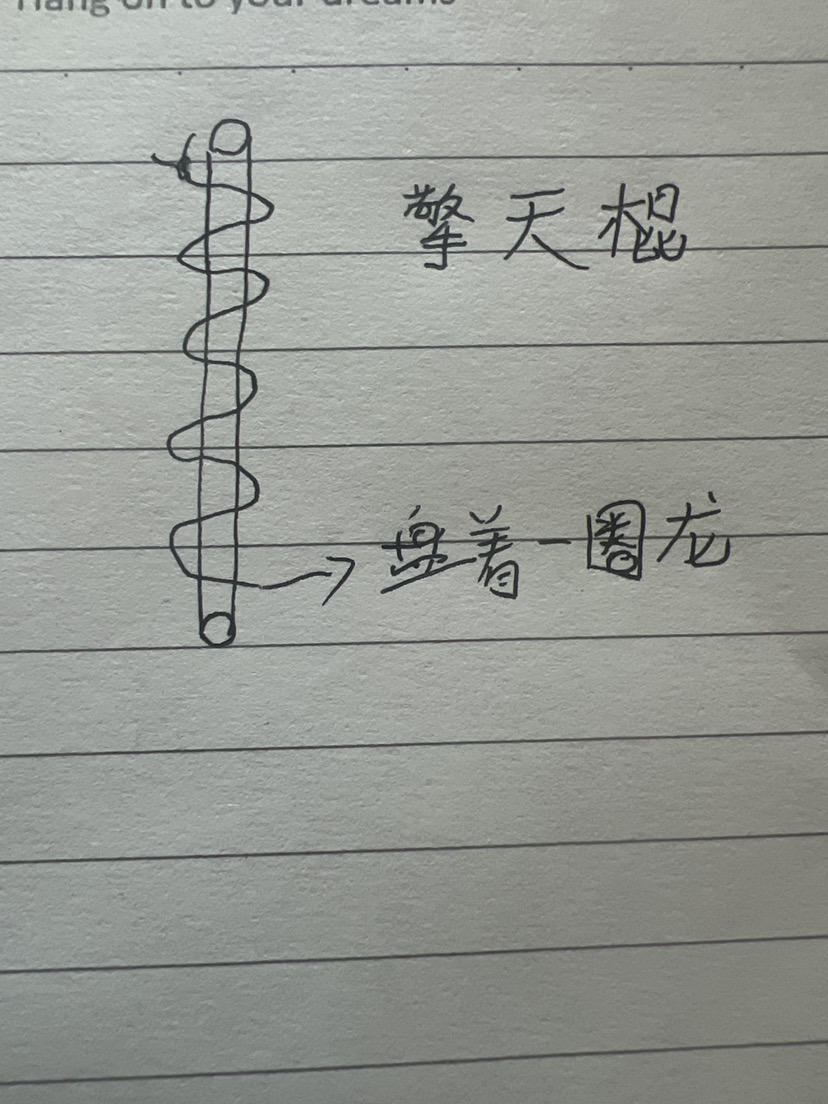 Hang on to your dreams
擎天棍
盘着一圈龙